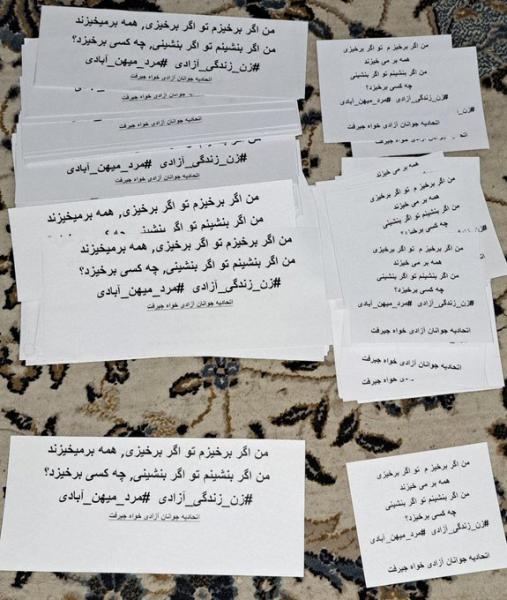 من اگر برخیزم تو اگر برخیزی, همه برمیخیزند
من اگر بنشینم تو اگر بنشینی, چه کسی برخیزد؟
#زن_زندگی_آزادی #مرد_میهن_آبادی
اتحادیه جوانان آزادی خواه جیرفت
#زن_زندگی_آزادی #مرد_میهن_آبادی
اتحادیه جوانان آزادی خواه جیرفت
من اگر برخیزم تو اگر برخیزی, همه برمیخیزند
من اگر بنشینم تو اگر بنشینی, چه کسی
من اگر برخیزم تو اگر برخیزی, همه برمیخیزند
من اگر بنشینم تو اگر بنشینی, چه کسی برخیزد؟
#زن_زندگی_آزادی #مرد_میهن_آبادی
اتحادیه جوانان آزادی خواه جیرفت
من اگر برخیزم تو اگر برخیزی, همه برمیخیزند
من اگر بنشینم تو اگر بنشینی, چه کسی برخیزد؟
#زن_زندگی_آزادی #مرد_میهن_آبادی
اتحادیه جوانان آزادی خواه جیرفت
من اگر برخیز م تو اگر برخیزی
همه بر می خیزند
من اگر بنشینم تو اگر بنشینی
چه کسی برخیزد؟
#زن_زندگی_آزادی #مرد_میهن_آبادی
اتحادیه جوانان آزادی خواه جیرفت
همه بر می خیزند
من اگر برخیز م تو اگر برخیزی
همه بر می خیزند
من اگر بنشینم تو اگر بنشینی
چه کسی برخیزد؟
من اگر برخیز م تو اگر برخیزی
همه بر می خیزند
من اگر بنشینم تو اگر بنشینی
چه کسی برخیزد؟
#زن_زندگی_آزادی #مرد_میهن_آبادی
اتحادیه جوانان آزادی خواه جیرفت
اتحادیه جوانان آزادی خواه جیرفت
اتحادیه جوانان آزادی خواه جیرفت
من اگر برخیز م تو اگر برخیزی
همه بر می خیزند
من اگر بنشینم تو اگر بنشینی
چه کسی برخیزد؟
#زن_زندگی_آزادی #مرد_میهن_آبادی
اتحادیه جوانان آزادی خواه جیرفت